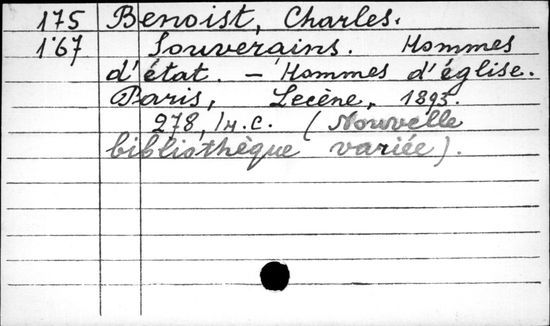 175 Benoist, Charles.
167 Souverains. Hommes
d'état. — Hommes d'église.
Paris, Lecène, 1893.
278, 1 н.с. (Nouvelle
bibliothèque variée).